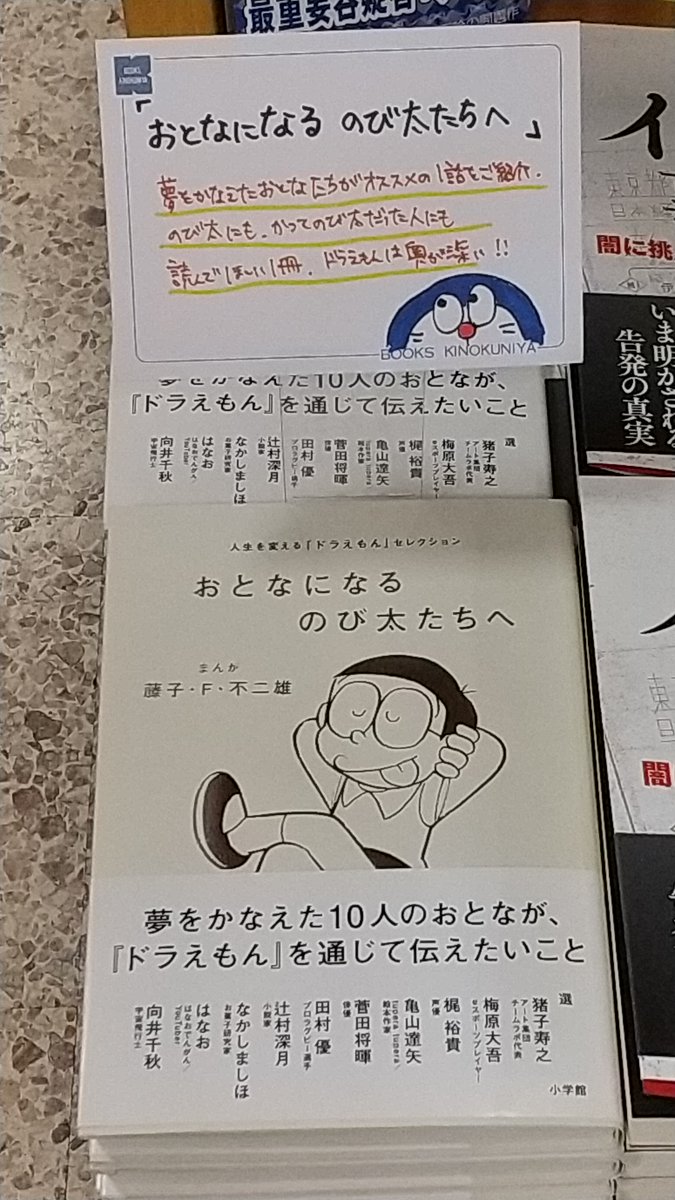 BOOKS
KINOKUNIYA
「おとなになる のび太たちへ」
夢をかなえたおとなたちがオススメの1話をご紹介.
のび太にも、かつてのび太だった人にも
読んでほしい1冊. ドラえもんは奥が深い!!
BOOKS KINOKUNIYA
夢をかなえた10人のおとなが、
『ドラえもん』を通じて伝えたいこと
選
猪子寿之
アート集団
チームラボ代表
梅原大吾
eスポーツプレイヤー
梶 裕貴
声優
亀山達矢
tupera tupera/
絵本作家
菅田将暉
俳優
田村 優
プロラグビー選手
辻村深月
小説家
なかしましほ
お菓子研究家
はなお
はなおでんがん/
YouTuber
向井千秋
宇宙飛行士
人生を変える「ドラえもん」セレクション
おとなになる
のび太たちへ
まんが
藤子・F・不二雄
夢をかなえた10人のおとなが、
『ドラえもん』を通じて伝えたいこと
選
猪子寿之
アート集団
チームラボ代表
梅原大吾
eスポーツプレイヤー
梶 裕貴
声優
亀山達矢
tupera tupera/
絵本作家
菅田将暉
俳優
田村 優
プロラグビー選手
辻村深月
小説家
なかしましほ
お菓子研究家
はなお
はなおでんがん/
YouTuber
向井千秋
宇宙飛行士
小学館
イ
東京
日本
闇に挑
いま明かされる
告発の真実
闇